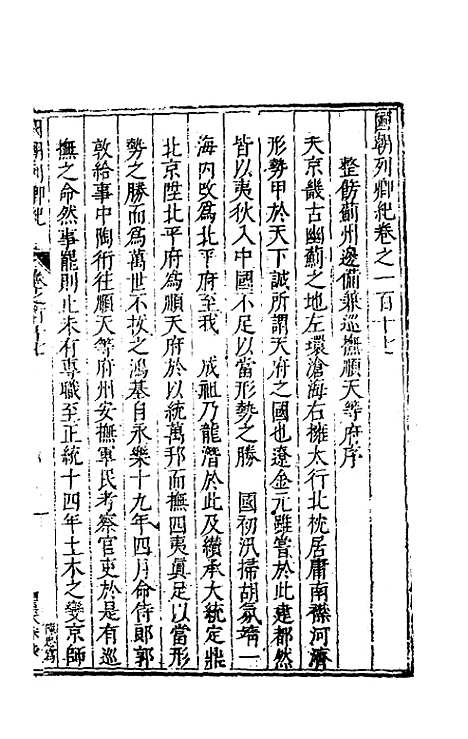 國朝列卿紀卷之一百十七
整飭薊州邊備兼巡撫順天等府序
天京畿古幽薊之地左環滄海右擁太行北枕居庸南襟河濟
形勢甲於天下誠所謂天府之國也遼金元雖嘗於此建都然
皆以夷狄入中國不足以當形勢之勝 國初汛掃胡氛靖一
海內改為北平府至我 成祖乃龍潛於此及纘承大統定鼎
北京陞北平府為順天府於以統萬邦而撫四夷眞足以當形
勢之勝而為萬世不拔之鴻基自永樂十九年四月命侍郎郭
敦給事中陶衎往順天等府州安撫軍民考察官吏於是有巡
撫之命然事罷則止未有專職至正統十四年土木之變京師
國朝列卿紀
卷之一百十七